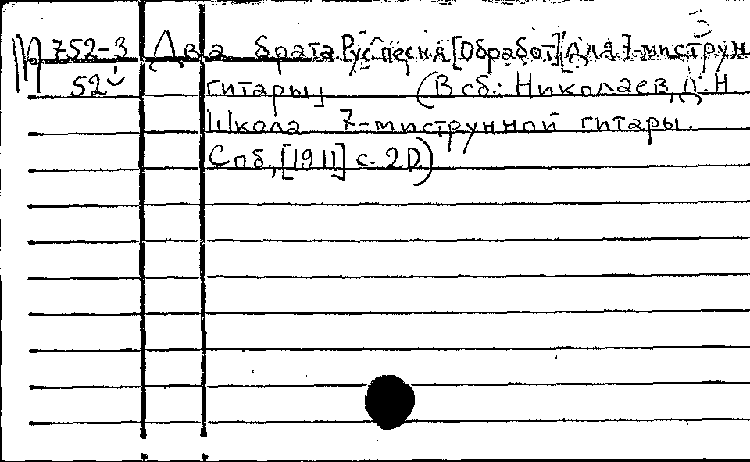 М 752-3 Два брата. Рус песня [Обработ] [для 7-миструн
52 гитары] (В сб.: Николаев, Д. Н
Школа 7-миструнной гитары.
Спб, [1911] с. 20)